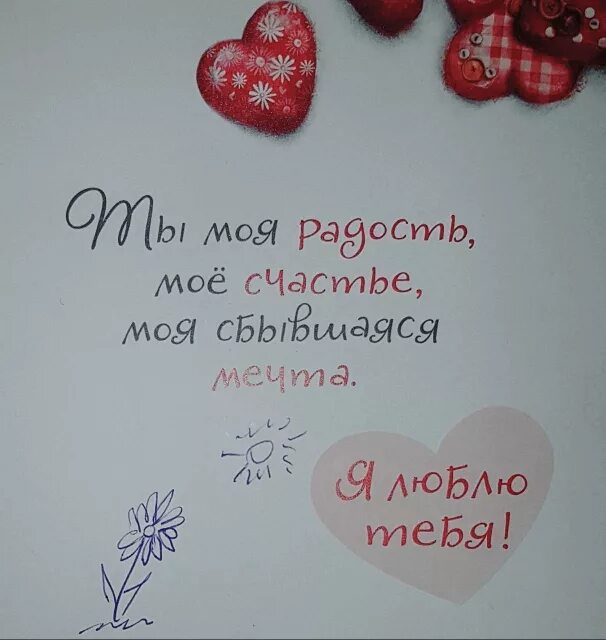 Ты моя радость,
моё счастье,
моя сбывшаяся
мечта.
Я люблю
тебя!